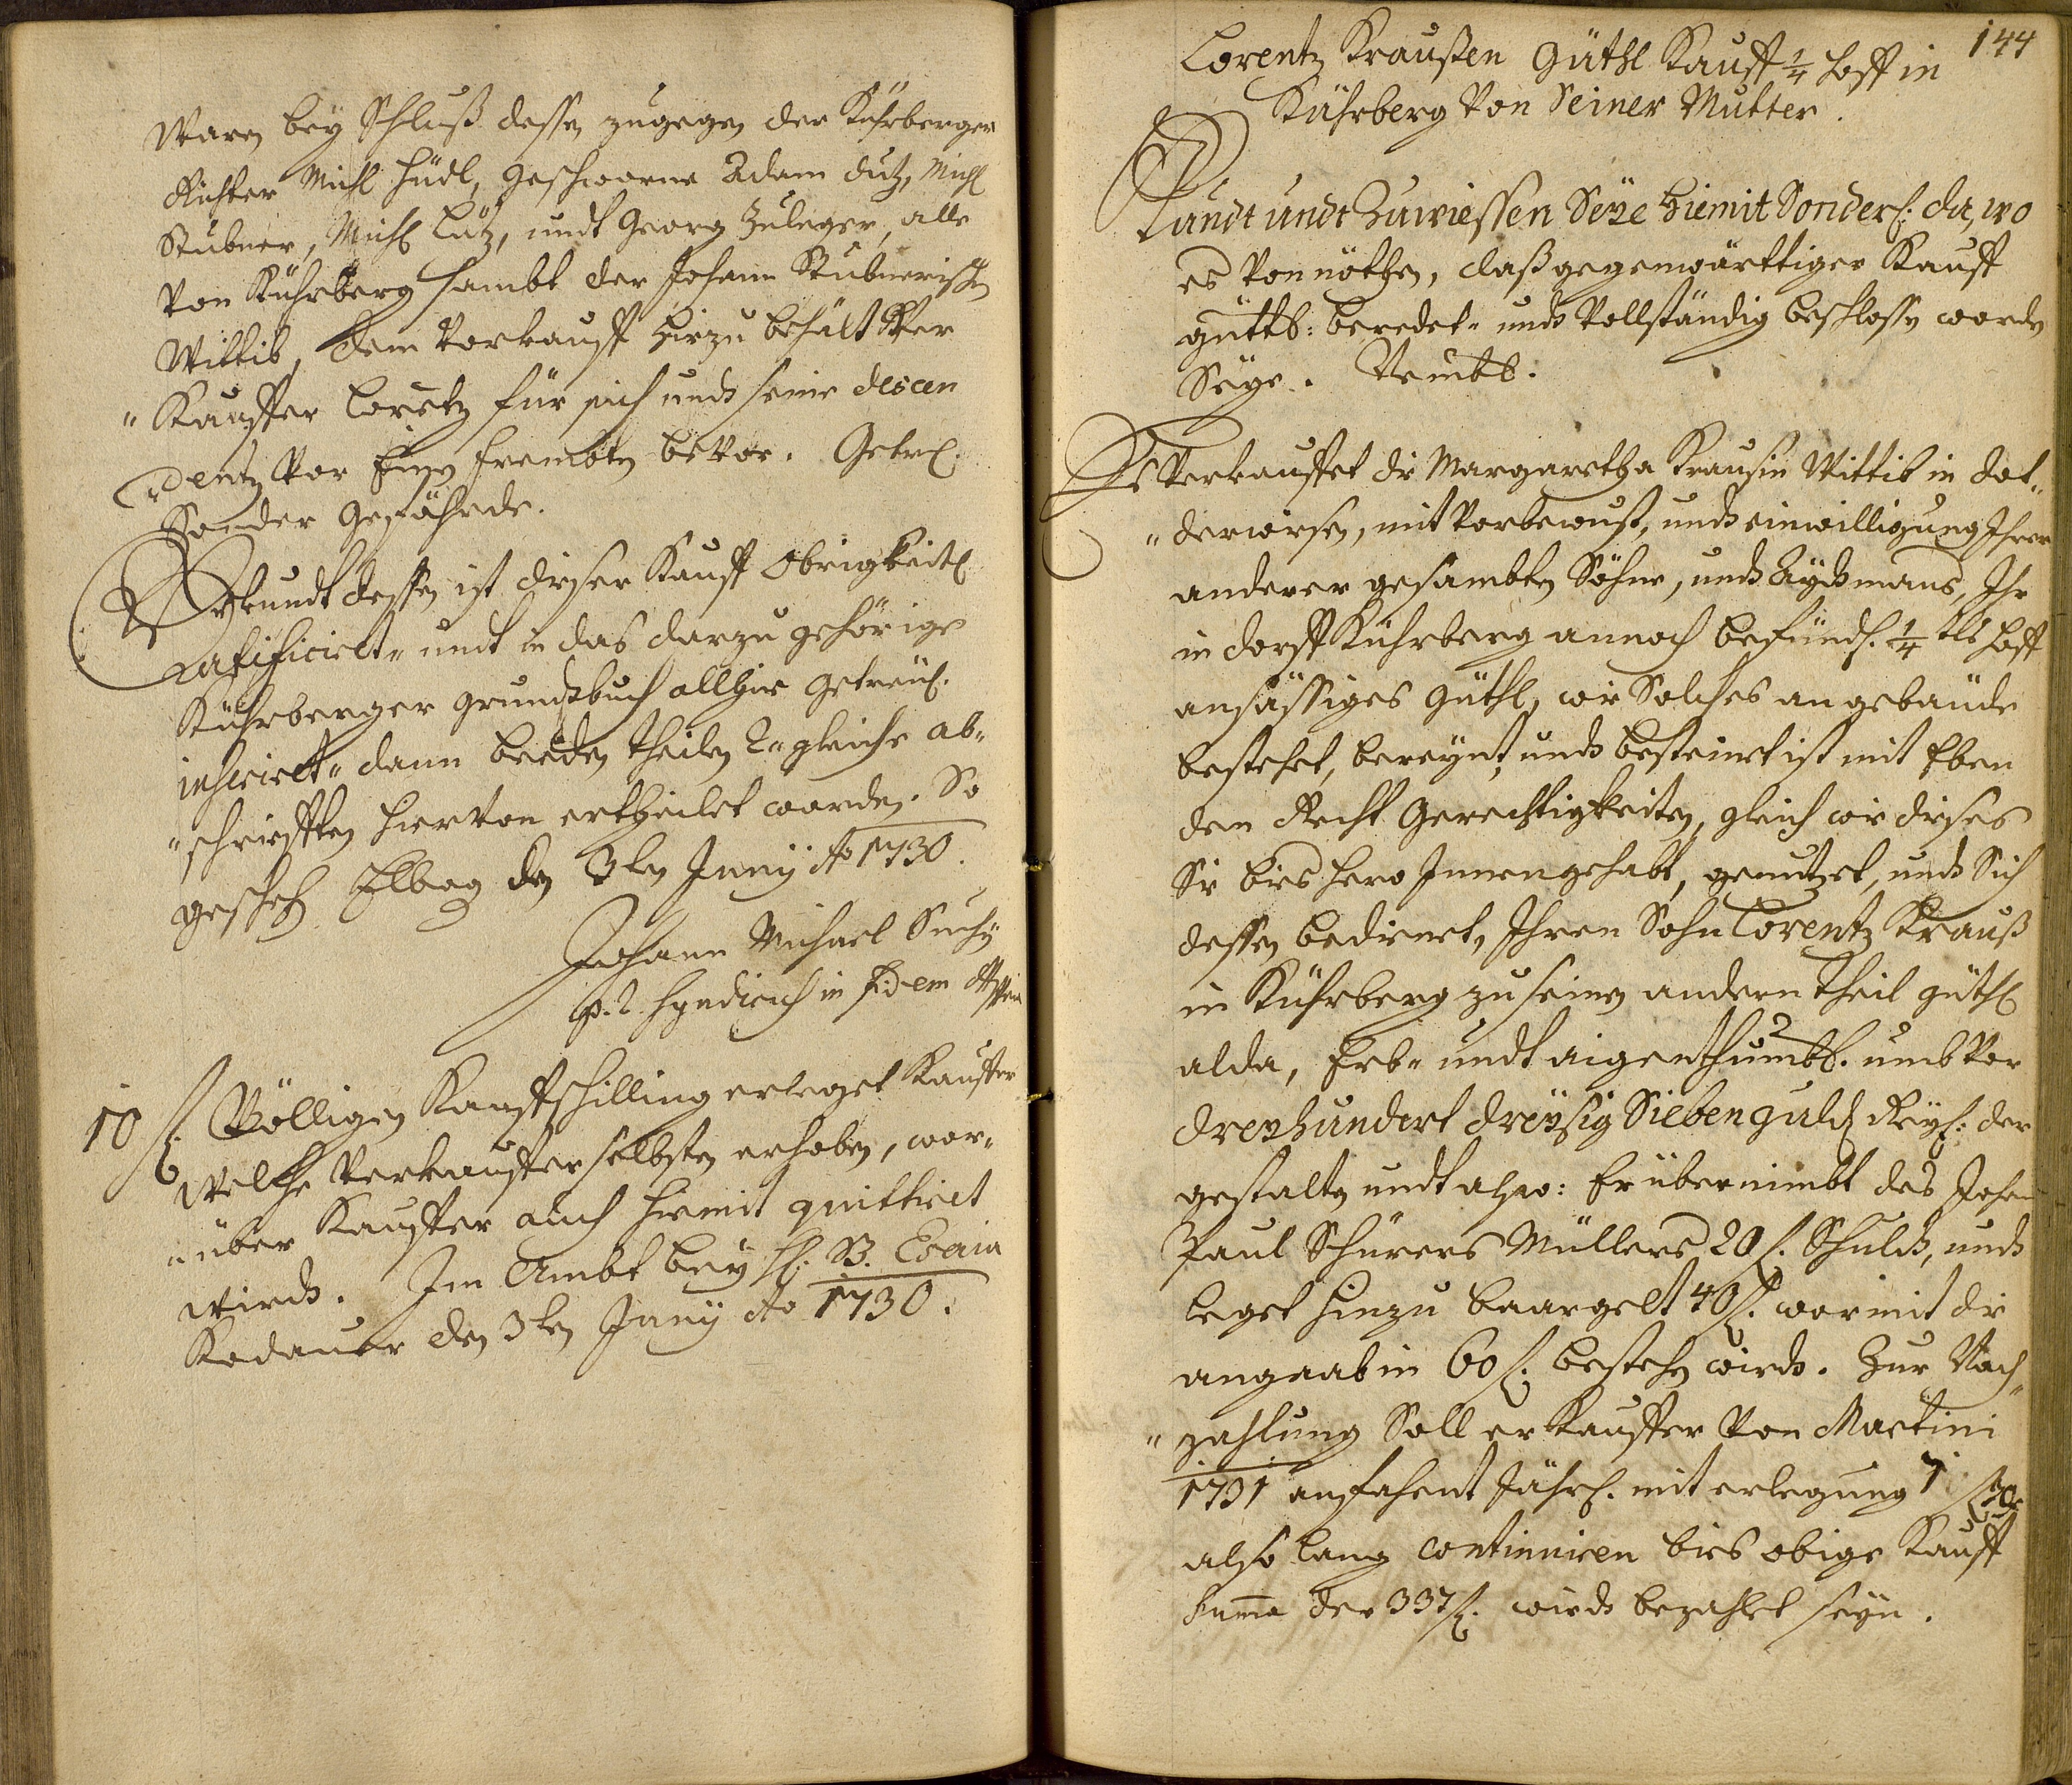 Waren bey Schluß dessen zugegen der Kührberger
Richter Michl Hüdl, Geschworne Adam Lutz, Michl
Stübner, Michl Lutz, undt Georg Zuleger, alle
von Kührberg sambt der Johann Stübnerischen
Wittib, dem Vorkauff hirzu behält Er
"Kauffer Loretz für sich undt seine descen
"dentz vor Einen frembten bevor. Getrl.
Sonder Gefährde.
Urkundt dessen ist dieser Kauff Obrigkeitl
ratificiret" undt in das darzu gehörige
Kührberger Grundtbuch allhier getreül.
inseriret" dann beeden theilen 2" gleiche ab"
"schriefften hiervon ertheilet worden. So
geschehen Elbog den 3ten Junÿ Ao 1730.
Johann Michael Suchÿ
p. t. Syndicus in fidem
10 f. Völligen Kauffschilling erleget Kauffer
welche Verkauffer selbsten erhoben, wor"
"über Kauffer auch hiermit quittiret
wirdt. Im Ambt bey H: B. Esaia
Kadauer den 3ten Junÿ Ao 1730.
144
Lorentz Kraußen Güthl Kauff 1/4 hoff in
Kührberg von Seiner Mutter.
Kundt undt Zuwiessen Seÿe hiemit Sonderl: da, wo
es vonnöthen, daß gegenwärttiger Kauff
güttl: beredet" undt vollständig beschlossen worden
Seÿe. Nembl.
Es Verkauffet die Margaretha Krausin Wittib in Dot"
"derwiesen, mit Vorbewust, undt einwilligung Ihrer
anderer gesambten Söhne, undt Aydtmans, Ihr
in dorff Kührberg annoch befündl. 1/4 tls hoff
ansässiges Güthl, wie Solches an gebäude
bestehet, bereynt, undt besteinet ist mit Eben
den Recht Gerechtigkeiten, gleich wie dieses
Sie bieshero Innengehabt, genutzet, undt Sich
dessen bedienet, Ihren Sohn Lorentz Krauß
in Kührberg zu seinen andern theil güthl
alda, Erb" undt aigenthumbl. umb vor
dreyhundert dreysig Sieben guld Reyl: der
gestalten undt also: Er übernimbt des Johan
Paul Schürers Müllers 20 f. Schuldt, undt
leget hinzu baargelt 40 f. wormit die
angaab in 60 f: bestehen wirdt. Zur Nach"
"zahlung Soll er Kauffer von Martini
1731 anfahent Jährl. mit erlegung 7 f 30
also lang continuiren bies obige Kauff
Summa der 337 f: wirdt bezahlet seyn.